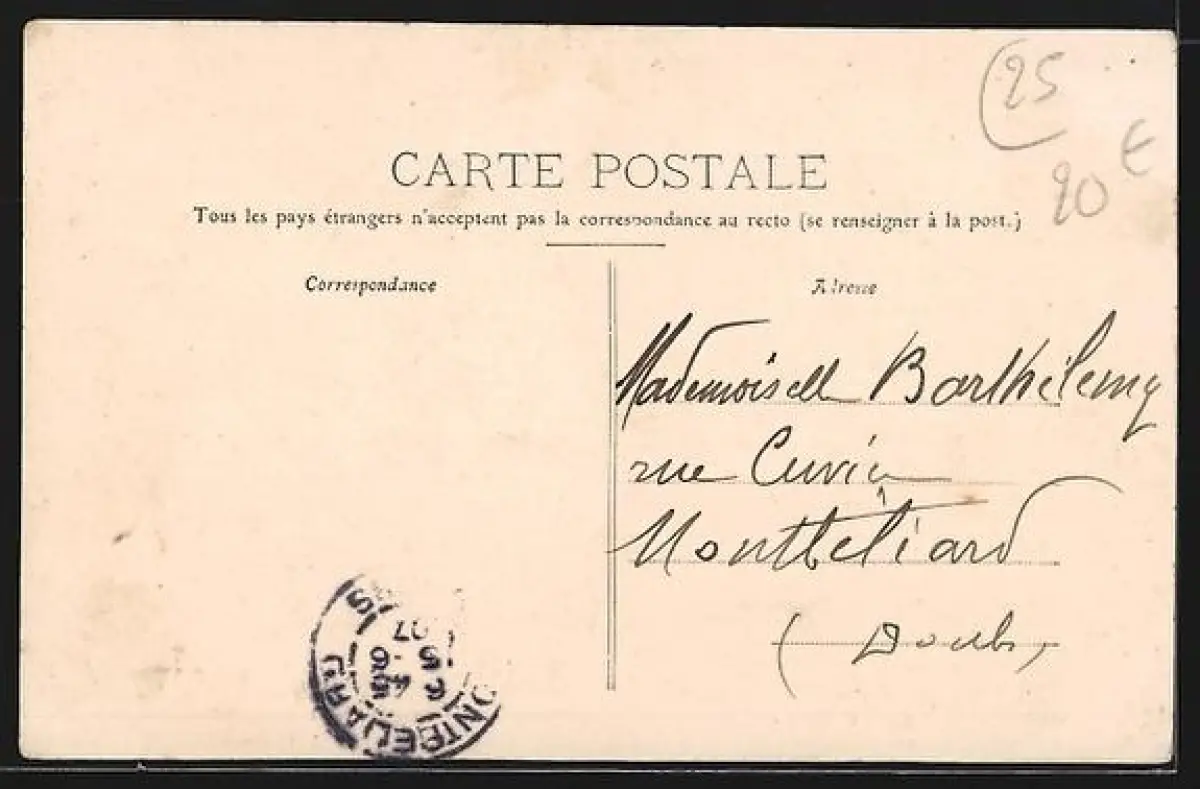 (25
90 €
CARTE POSTALE
Tous les pays étrangers n'acceptent pas la correspondance au recto (se renseigner à la post.)
Correspondance
Adresse
Mademoiselle Barthélemy
rue Cuvier
Montbéliard
(Doubs)
MONTBELIARD
07